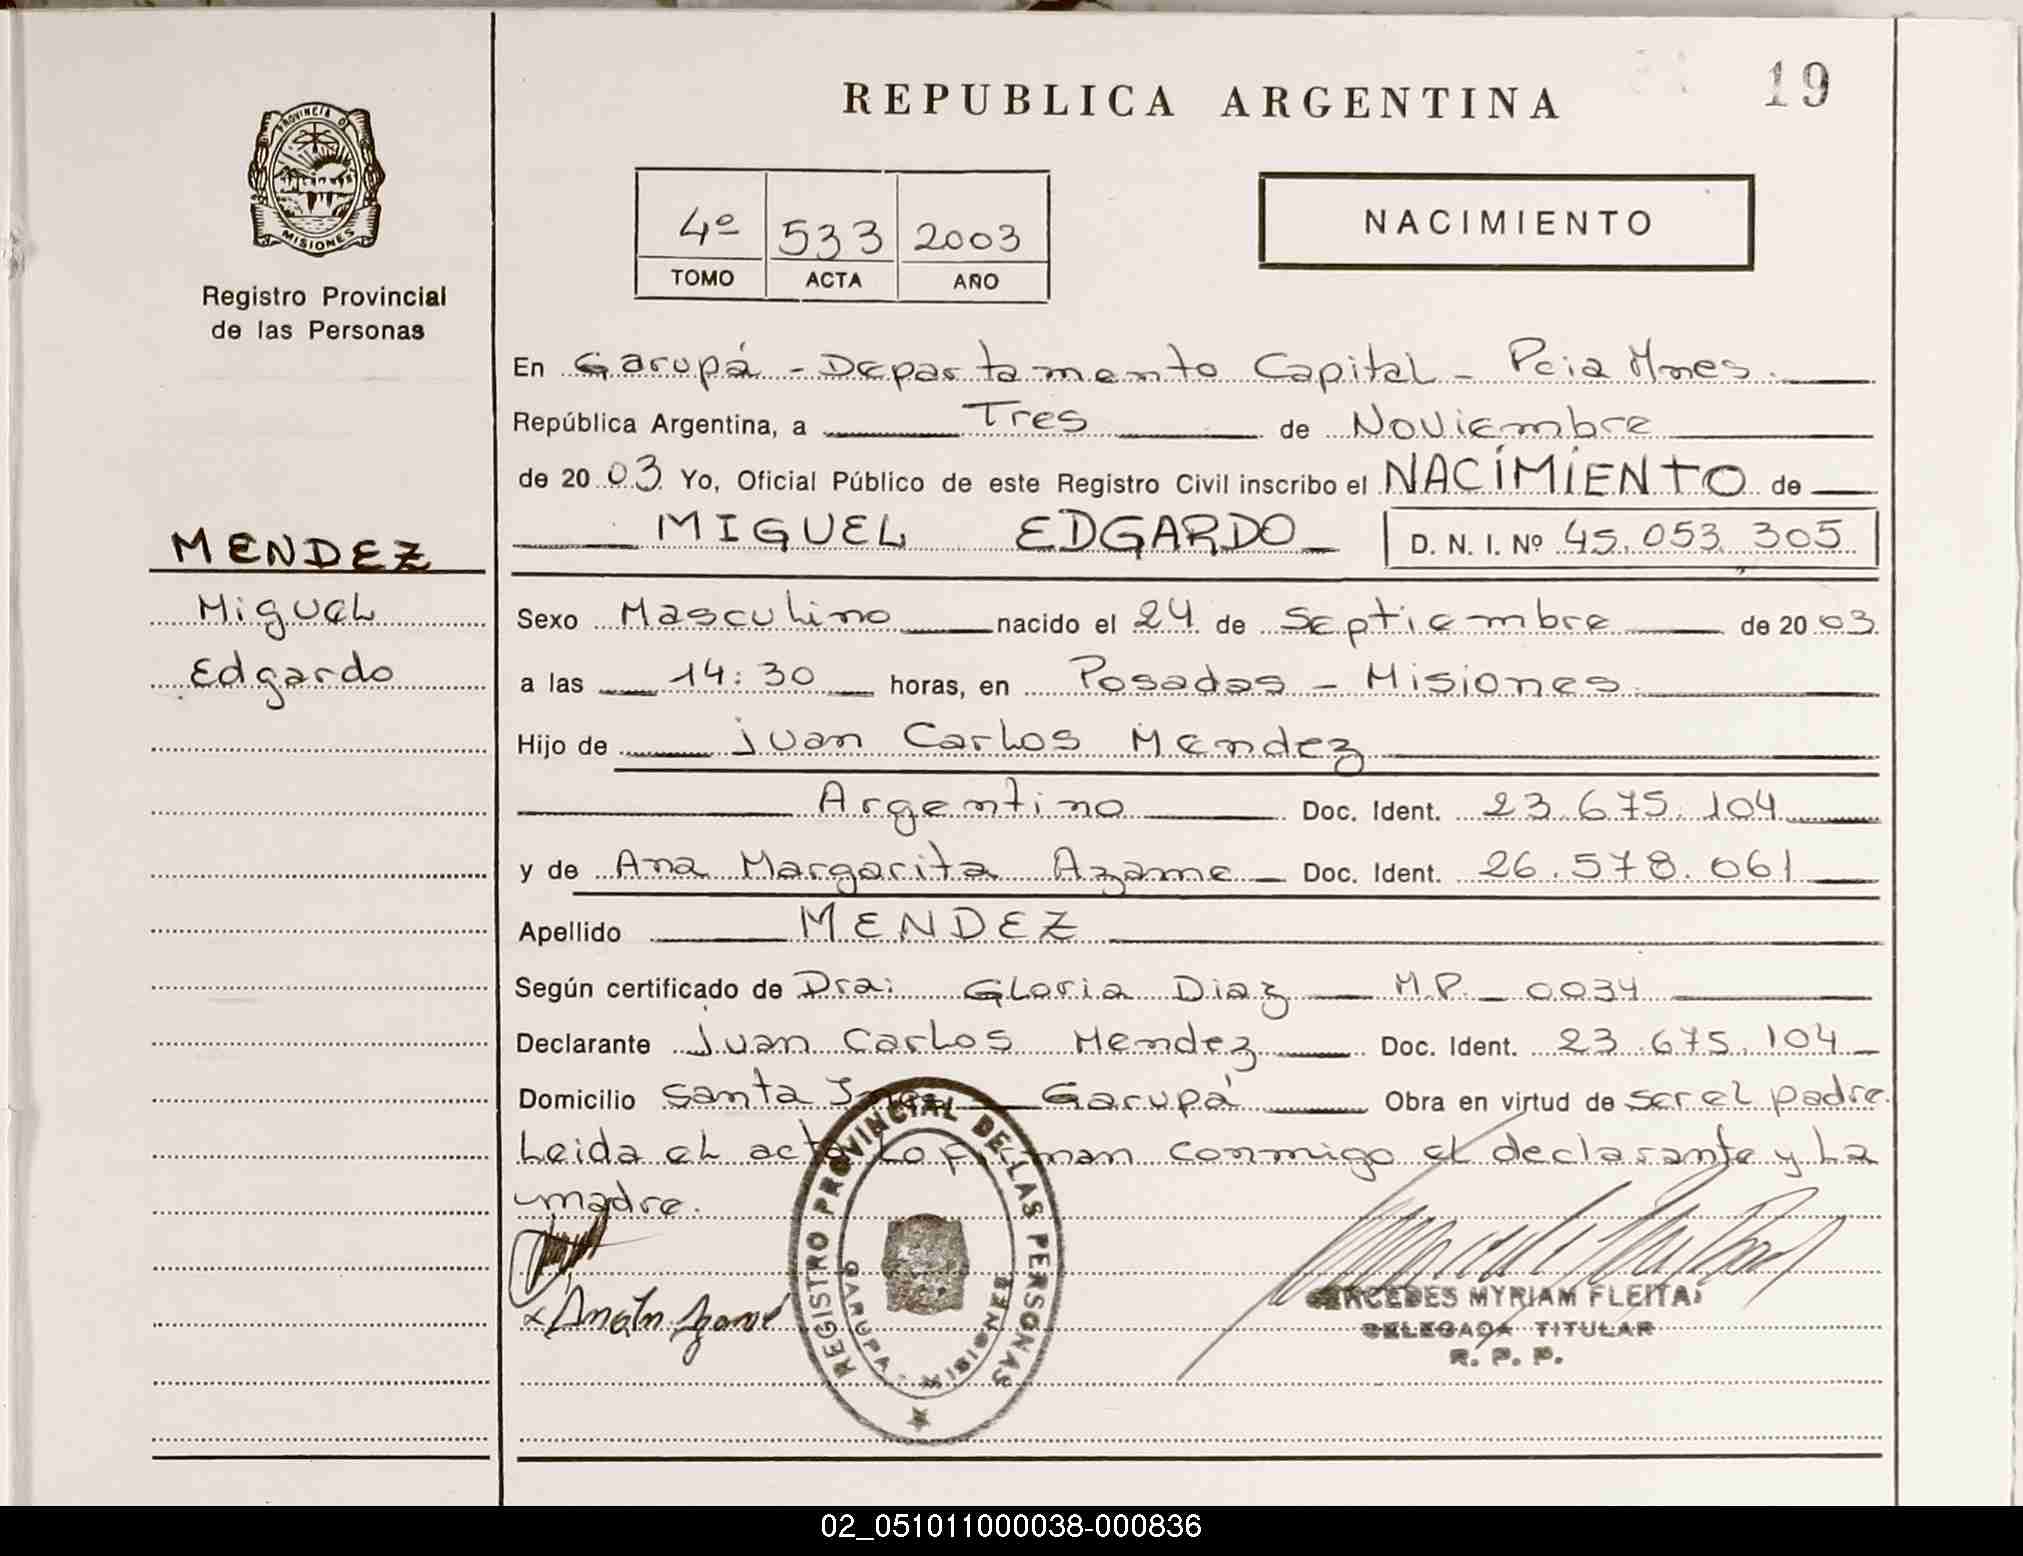 REPUBLICA ARGENTINA
19
PROVINCIA DE
MISIONES
Registro Provincial
de las Personas
4º 533 2003
TOMO ACTA AÑO
NACIMIENTO
En Garupá - Departamento Capital - Pcia Mnes.
República Argentina, a Tres de Noviembre
de 2003 Yo, Oficial Público de este Registro Civil inscribo el NACIMIENTO de
MIGUEL EDGARDO D. N. I. Nº 45.053.305
MENDEZ
Miguel
Edgardo
Sexo Masculino nacido el 24 de Septiembre de 2003
a las 14:30 horas, en Posadas - Misiones
Hijo de Juan Carlos Mendez
Argentino Doc. Ident. 23.675.104
y de Ana Margarita Azame Doc. Ident. 26.578.061
Apellido MENDEZ
Según certificado de Dra: Gloria Diaz M.P. 0034
Declarante Juan Carlos Mendez Doc. Ident. 23.675.104
Domicilio Santa Ines Garupá Obra en virtud de ser el padre.
Leida el acta la firman conmigo el declarante y la
madre.
REGISTRO PROVINCIAL DE LAS PERSONAS
GARUPA - MISIONES
MERCEDES MYRIAM FLEITAS
DELEGADA TITULAR
R. P. P.
02_051011000038-000836